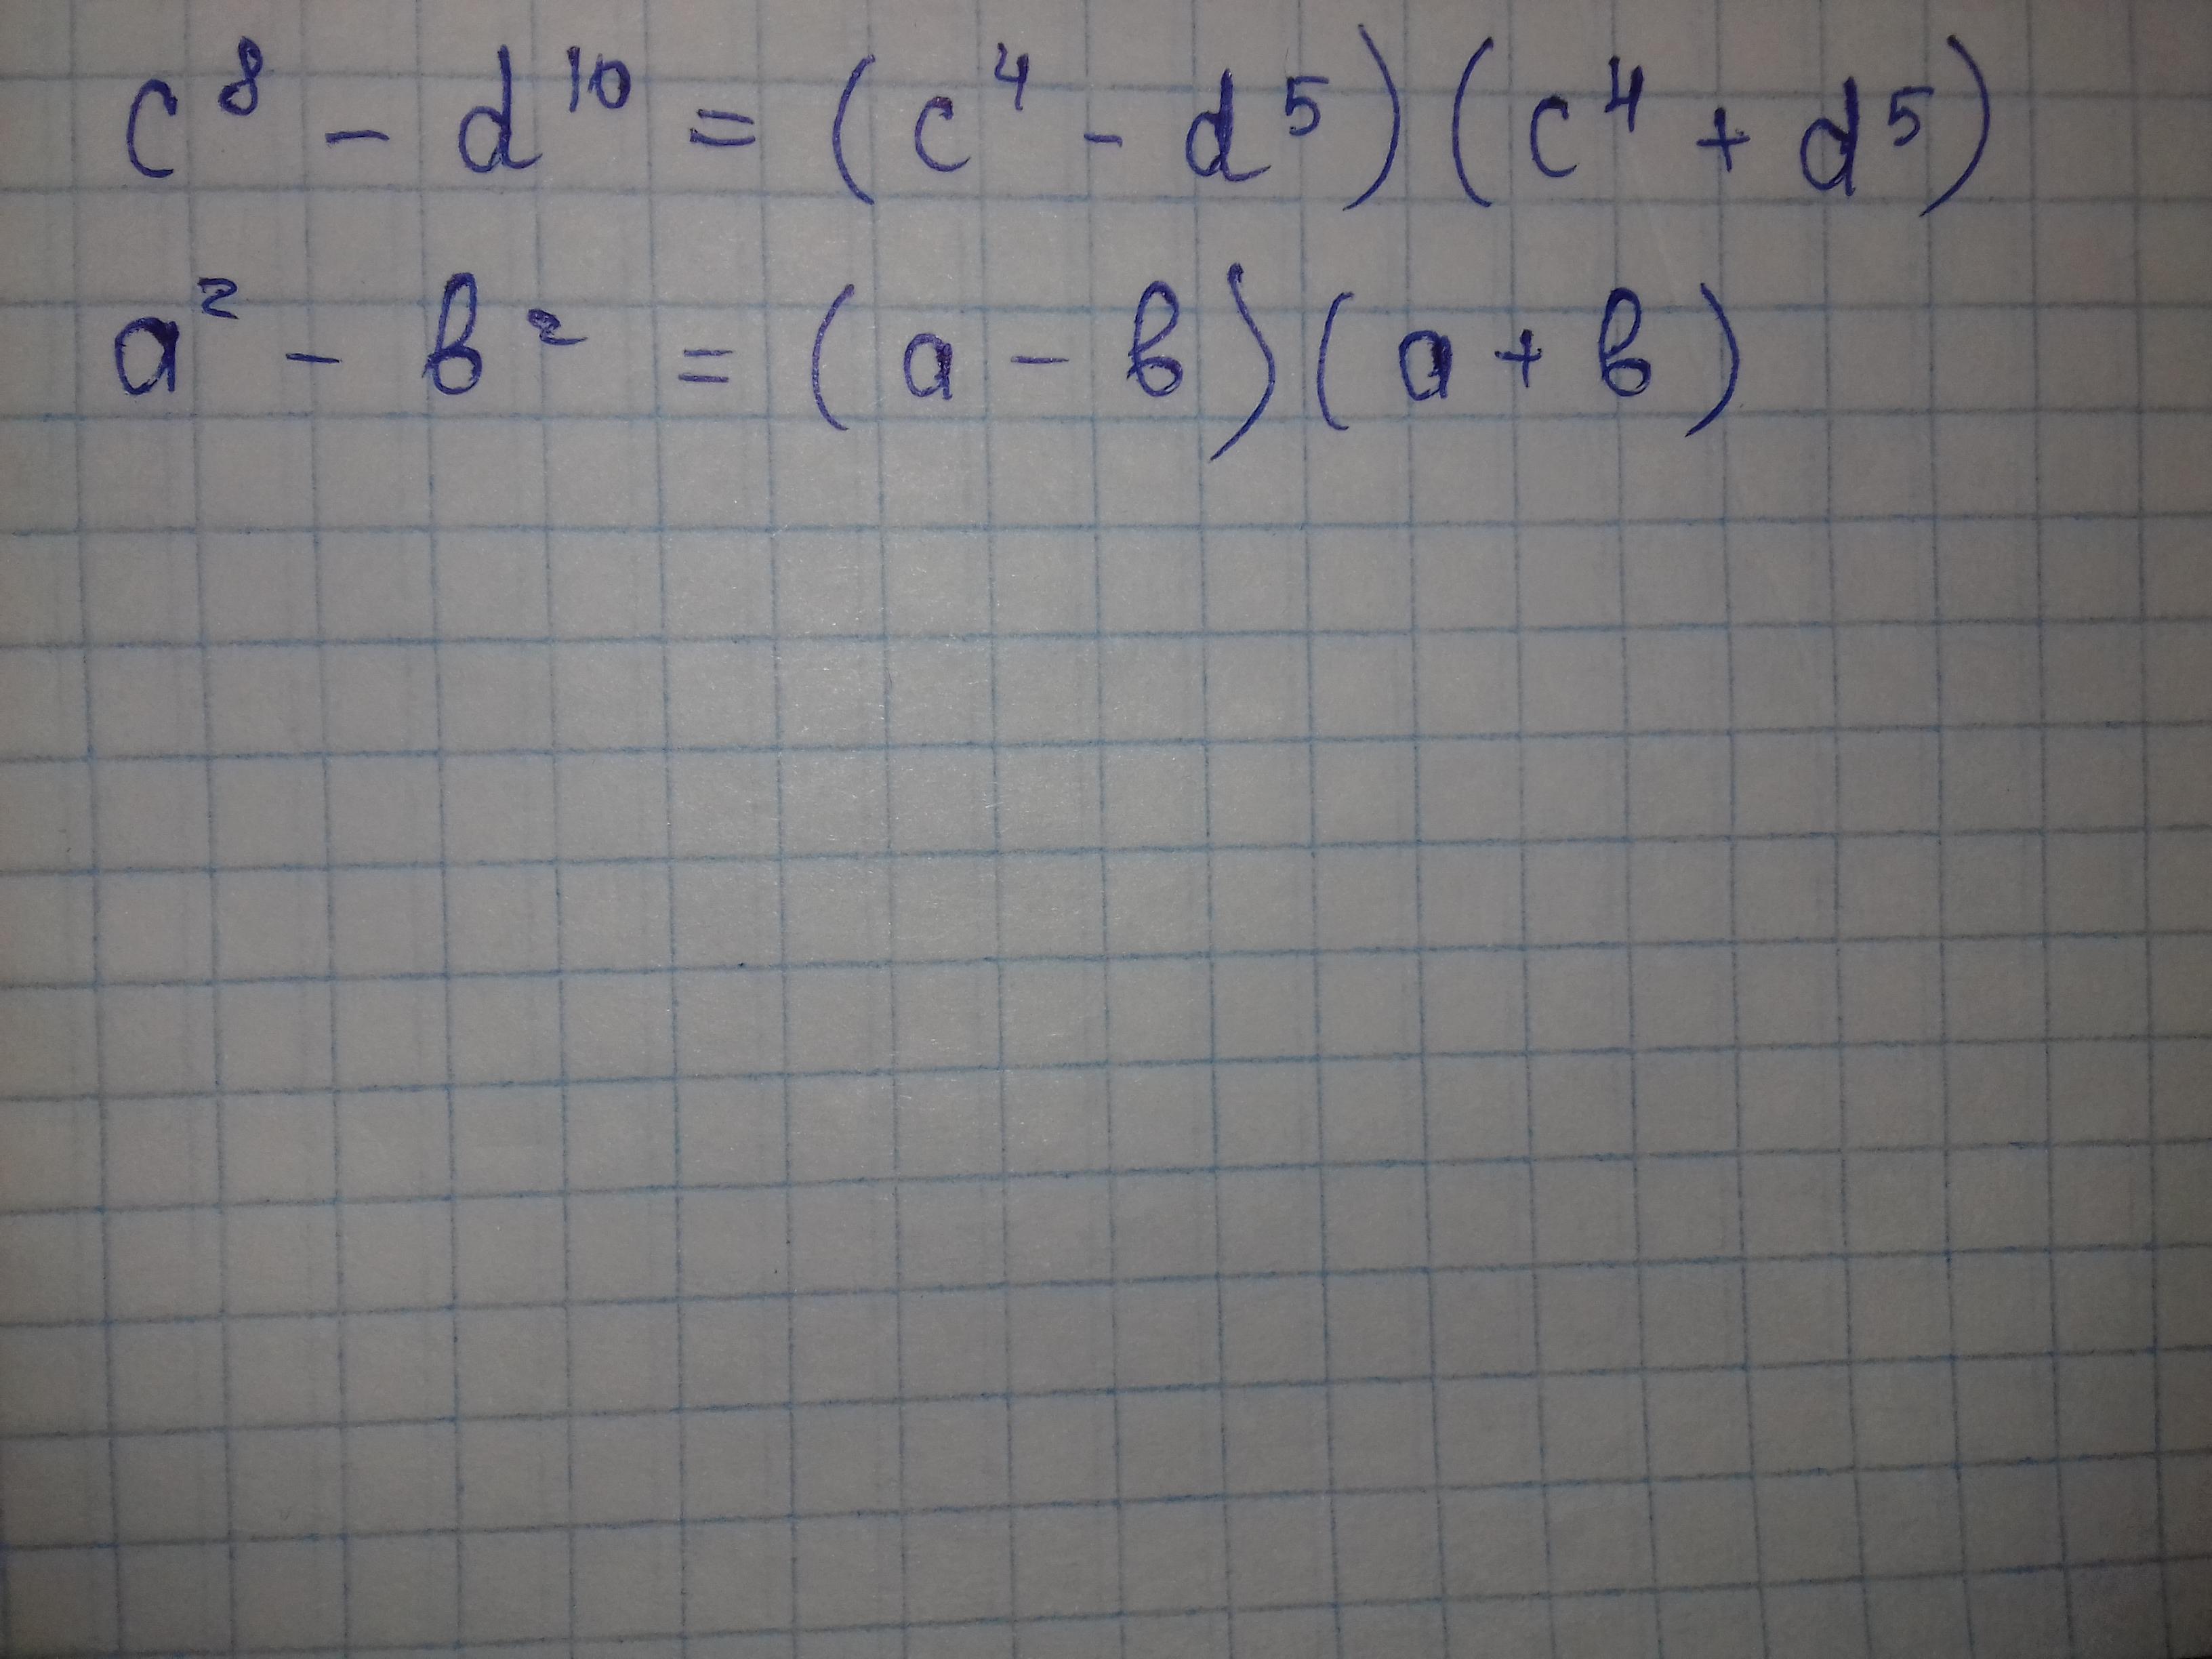 c⁸ - d¹⁰ = (c⁴ - d⁵)(c⁴ + d⁵)
a² - b² = (a - b)(a + b)